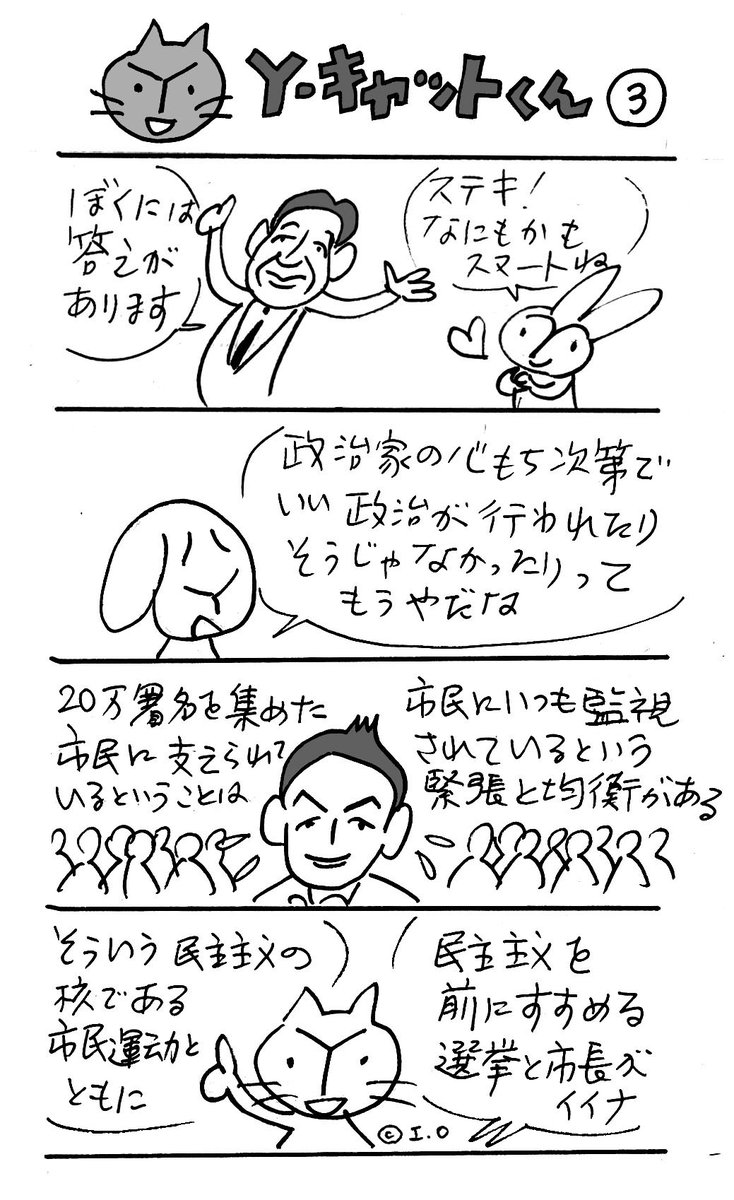 Y・キャットくん ③
ぼくには
答えが
あります
ステキ!
なにもかも
スマートね
政治家の心もち次第で
いい政治が行われたり
そうじゃなかったりって
もうやだな
20万署名を集めた
市民に支えられて
いるということは
市民にいつも監視
されているという
緊張と均衡がある
そういう民主主義の
核である
市民運動と
ともに
民主主義を
前にすすめる
選挙と市長が
イイナ
©I.O